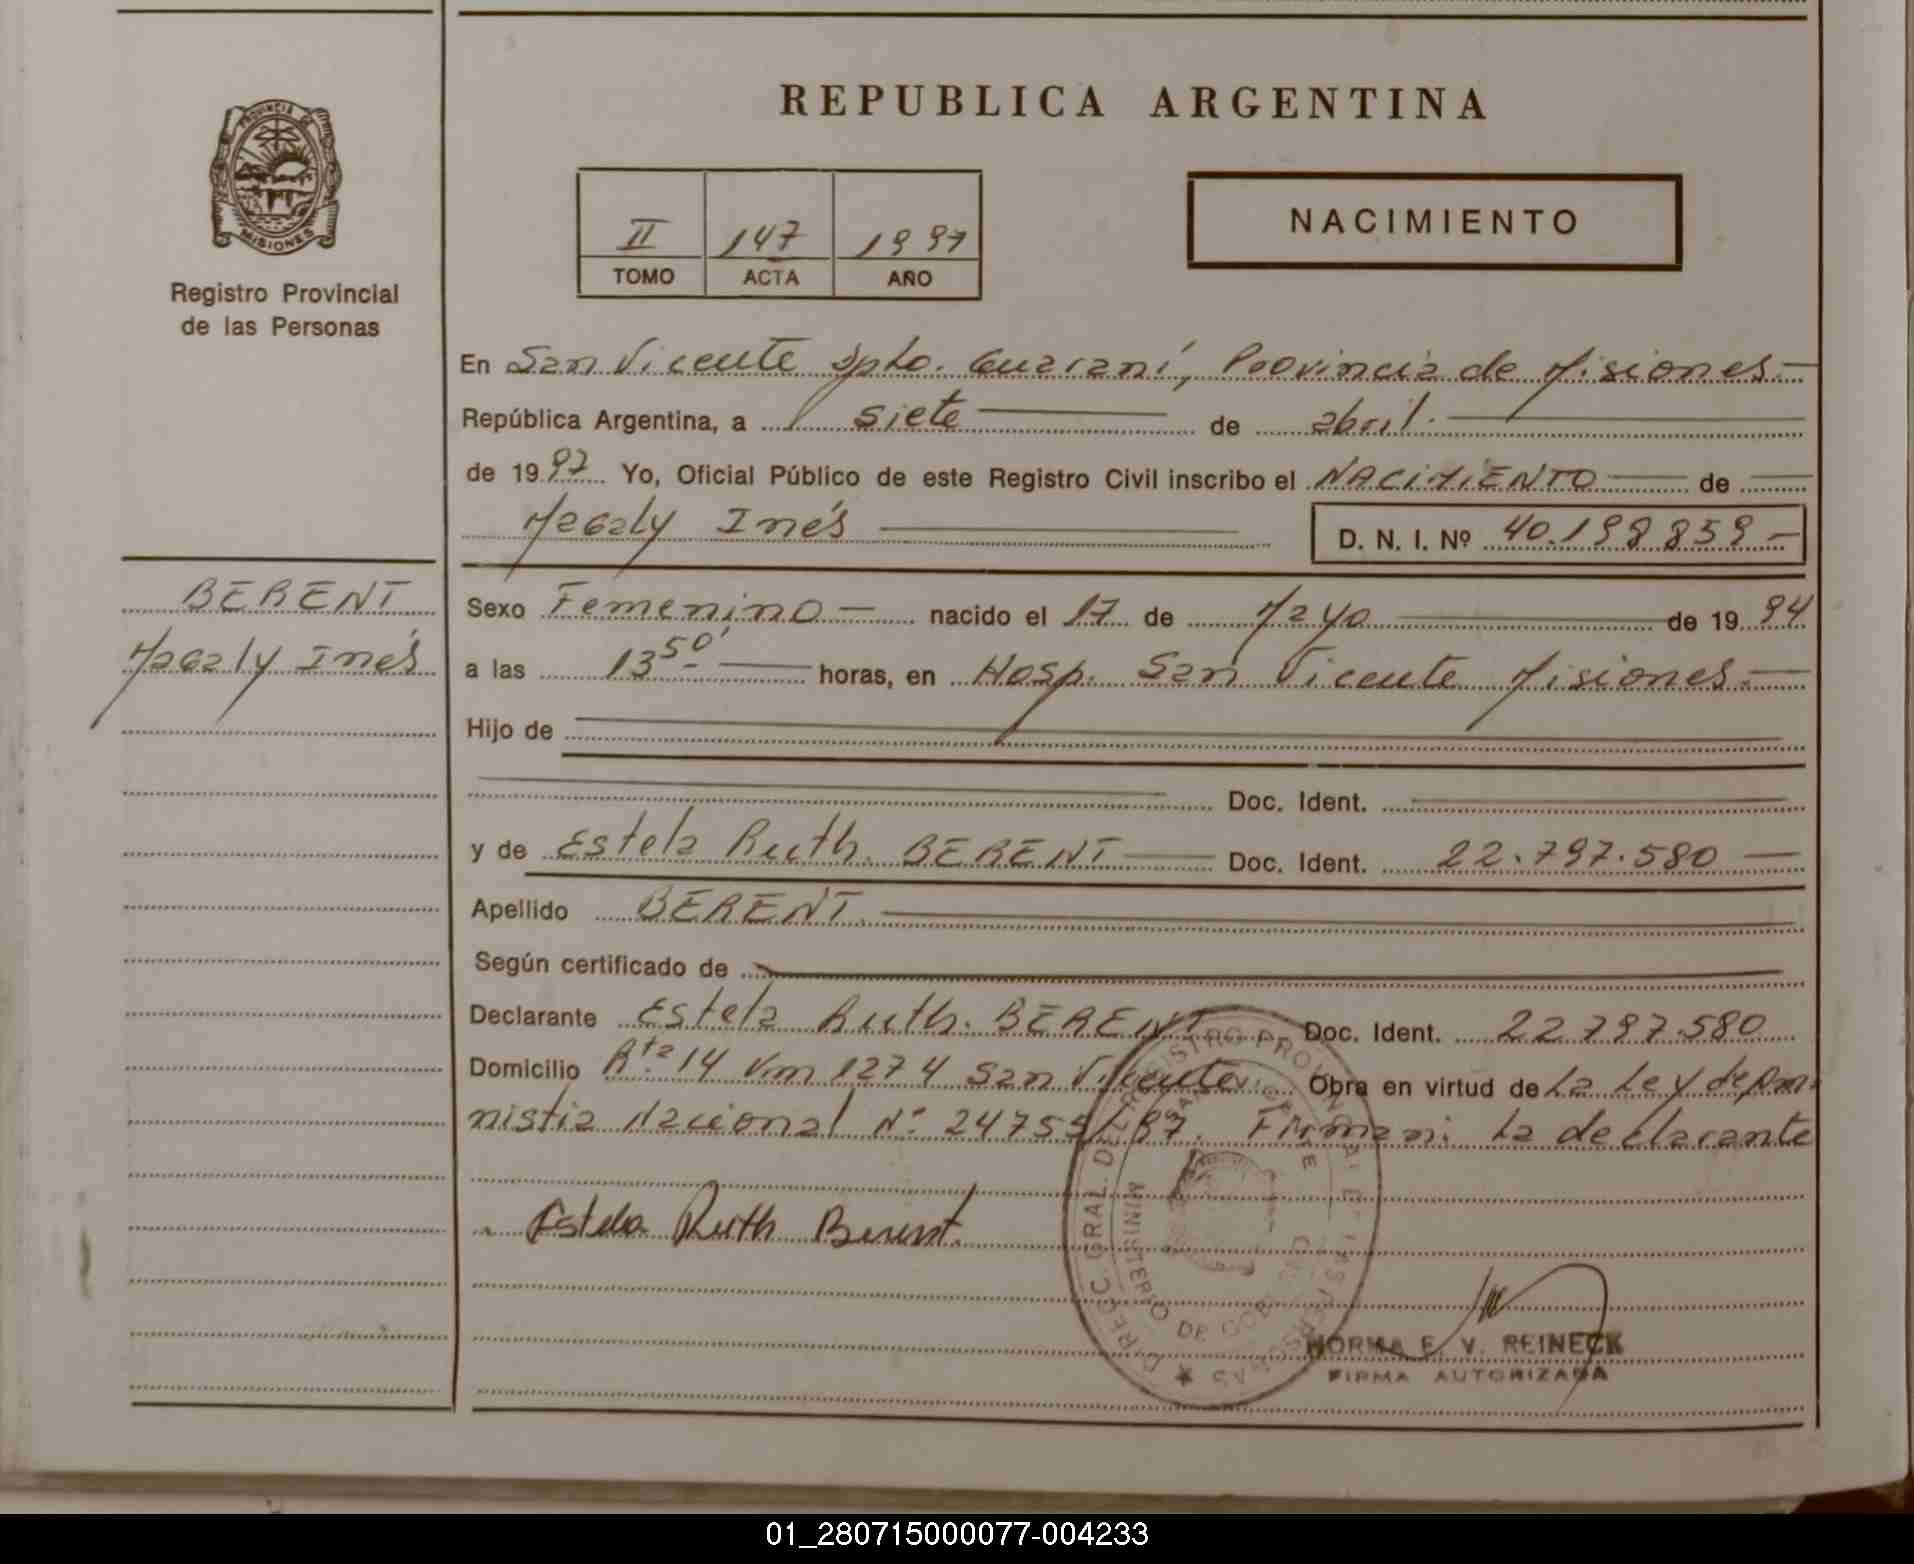 REPUBLICA ARGENTINA
PROVINCIA DE
MISIONES
Registro Provincial
de las Personas
II 147 1997
TOMO ACTA AÑO
NACIMIENTO
En San Vicente Dpto. Guaraní, Provincia de Misiones.-
República Argentina, a siete de abril.
de 1997 Yo, Oficial Público de este Registro Civil inscribo el NACIMIENTO de
Magaly Inés D. N. I. Nº 40.198859-
BERENT
Magaly Inés
Sexo Femenino - nacido el 17 de Mayo de 1994
a las 13 50' horas, en Hosp. San Vicente Misiones.-
Hijo de
Doc. Ident.
y de Estela Ruth. BERENT Doc. Ident. 22.797.580 -
Apellido BERENT.
Según certificado de
Declarante Estela Ruth. BERENT Doc. Ident. 22.797.580
Domicilio Rta. 14 Km 1274 San Vicente. Obra en virtud de La Ley de Am-
nistia Nacional Nº 24755/97. Firman: La declarante
Estela Ruth Berent.
DIRECC. GRAL. DEL REGISTRO PROVINCIAL DE LAS PERSONAS
MINISTERIO DE GOBIERNO
SAN VICENTE
NORMA E. V. REINECK
FIRMA AUTORIZADA
01_280715000077-004233